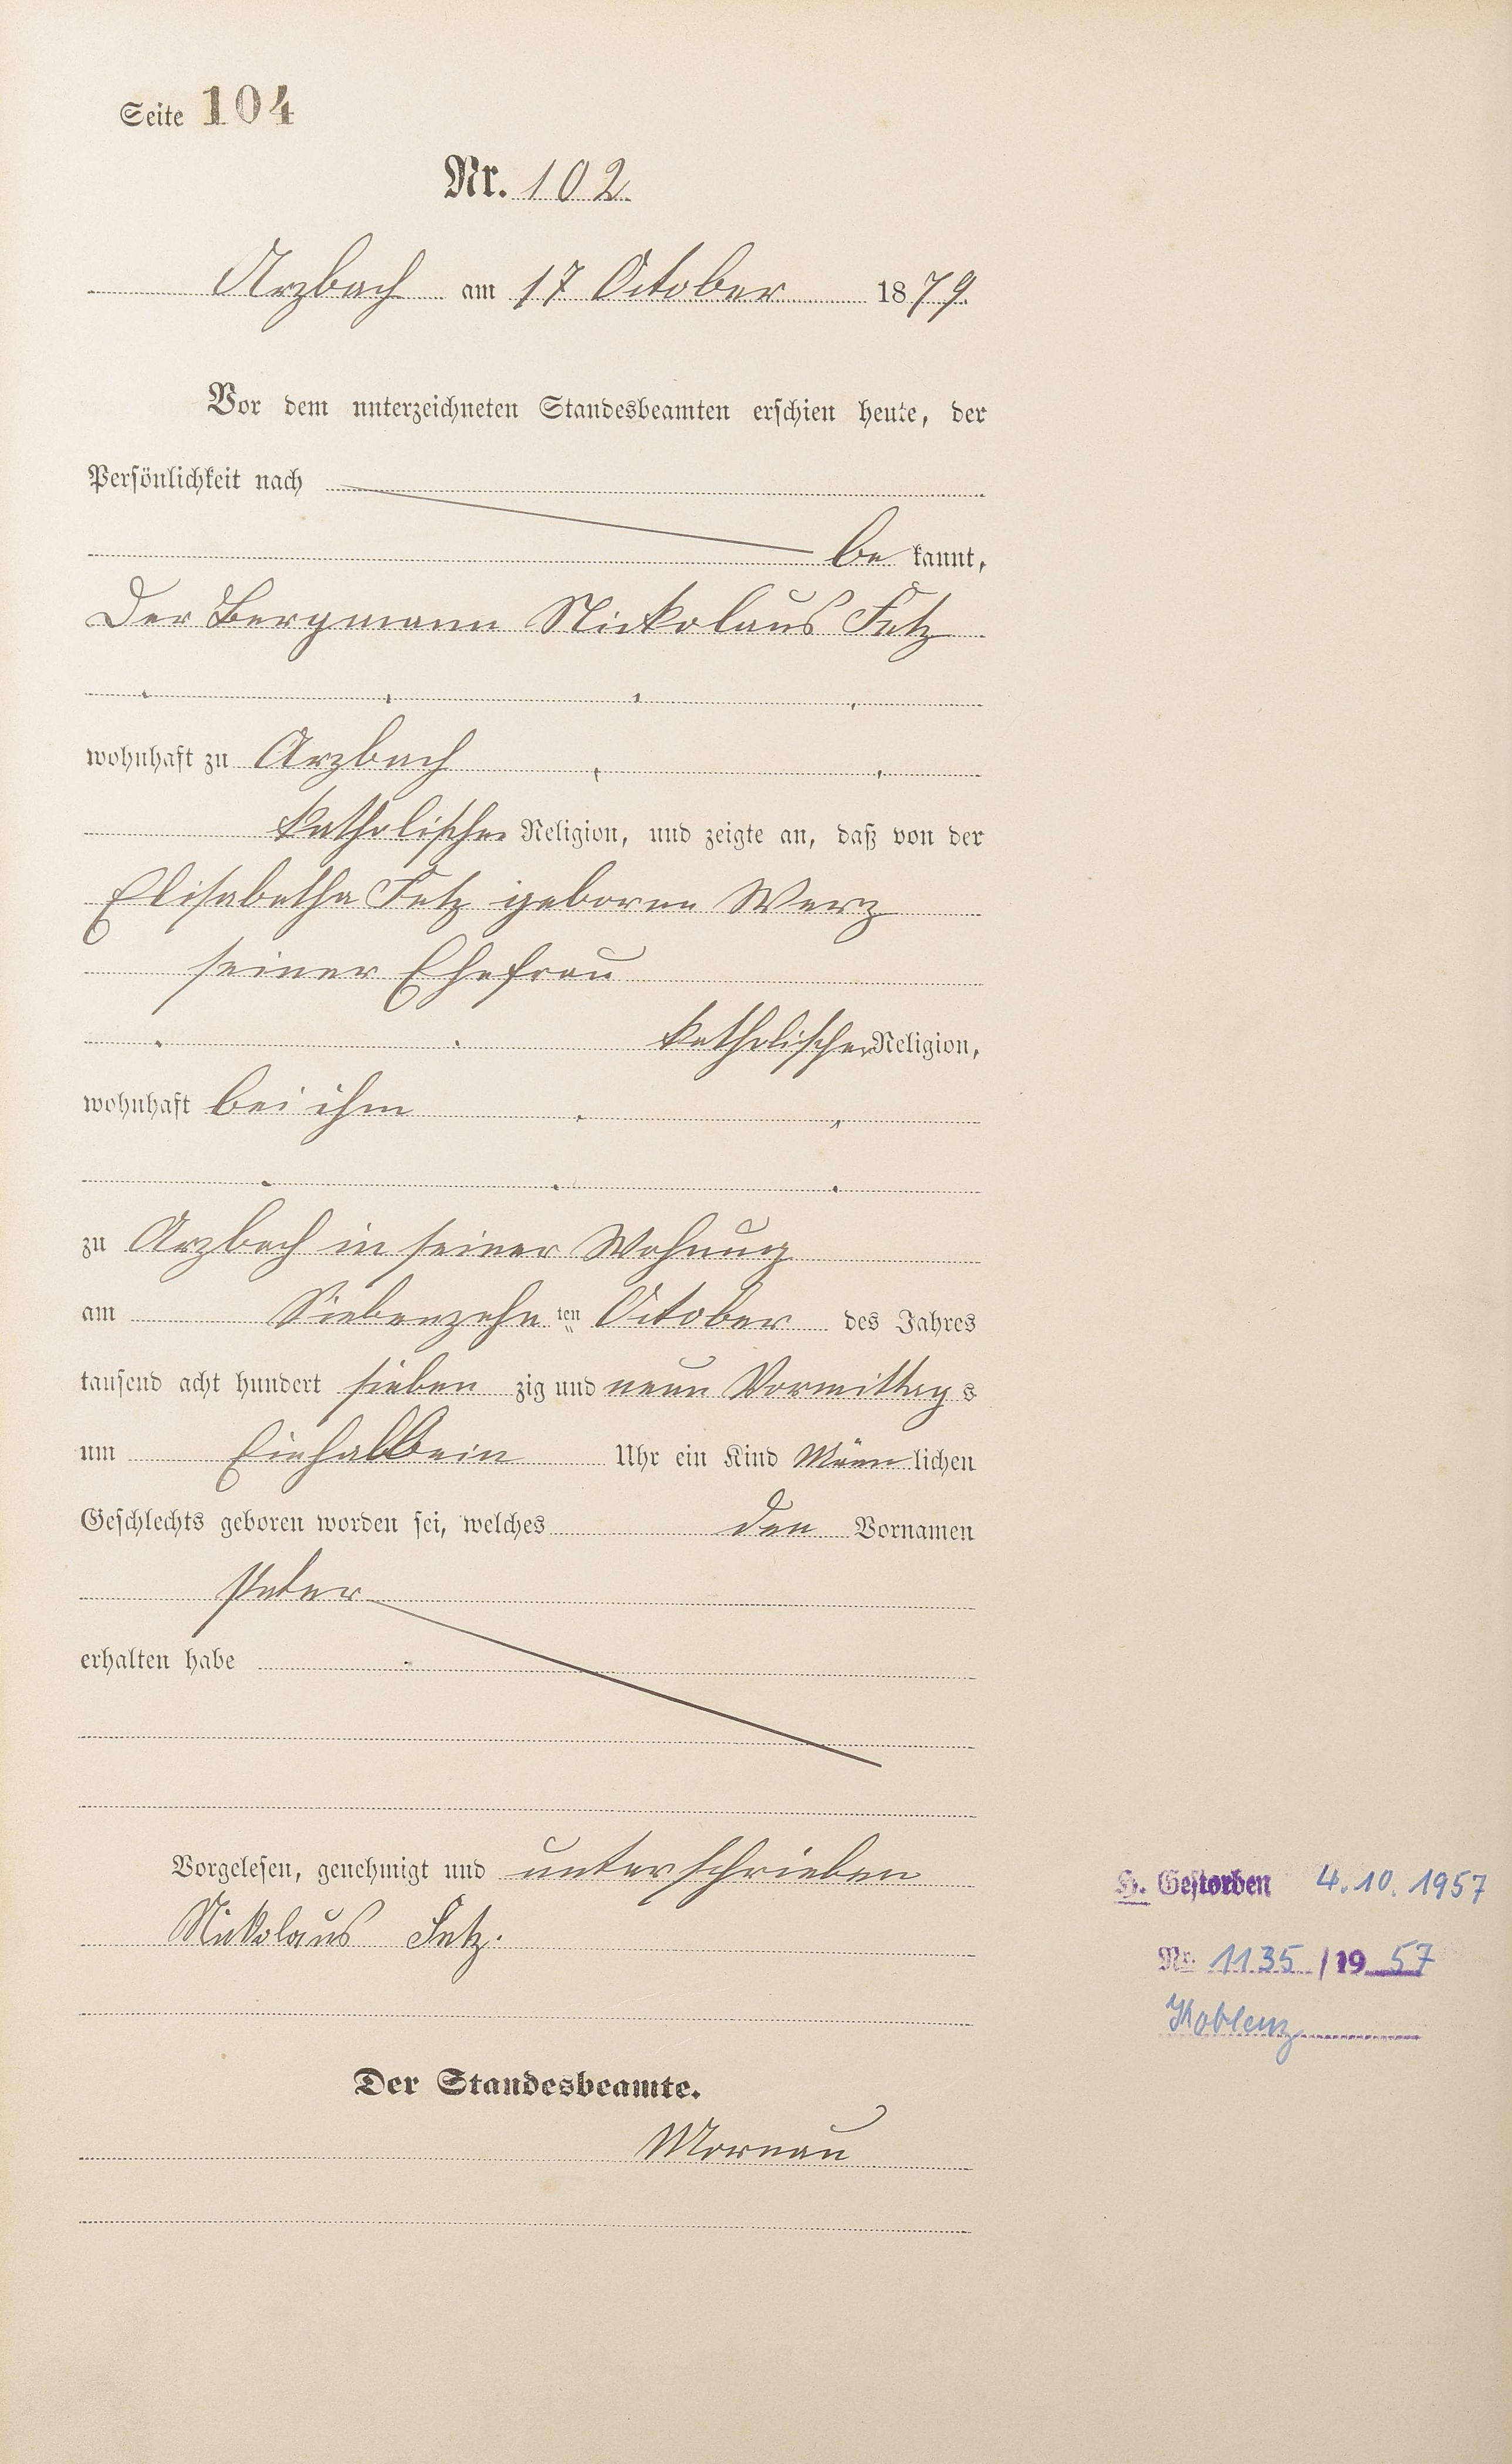 Seite 104
Nr. 102
Arzbach am 17 October 1879.
Vor dem unterzeichneten Standesbeamten erschien heute, der
Persönlichkeit nach
be kannt,
Der Bergmann Nickolaus Fetz
wohnhaft zu Arzbach
katholischer Religion, und zeigte an, daß von der
Elisabetha Fetz geborene Werz
seiner Ehefrau
katholischer Religion,
wohnhaft bei ihm
zu Arzbach in seiner Wohnung
am Siebenzehn ten October des Jahres
tausend acht hundert sieben zig und neun Vormittags
um Einhalbein Uhr ein Kind Männlichen
Geschlechts geboren worden sei, welches den Vornamen
Peter
erhalten habe
Vorgelesen, genehmigt und unterschrieben
Nickolaus Fetz.
H. Gestorben 4.10.1957
Nr. 1135 / 19 57
Koblenz
Der Standesbeamte.